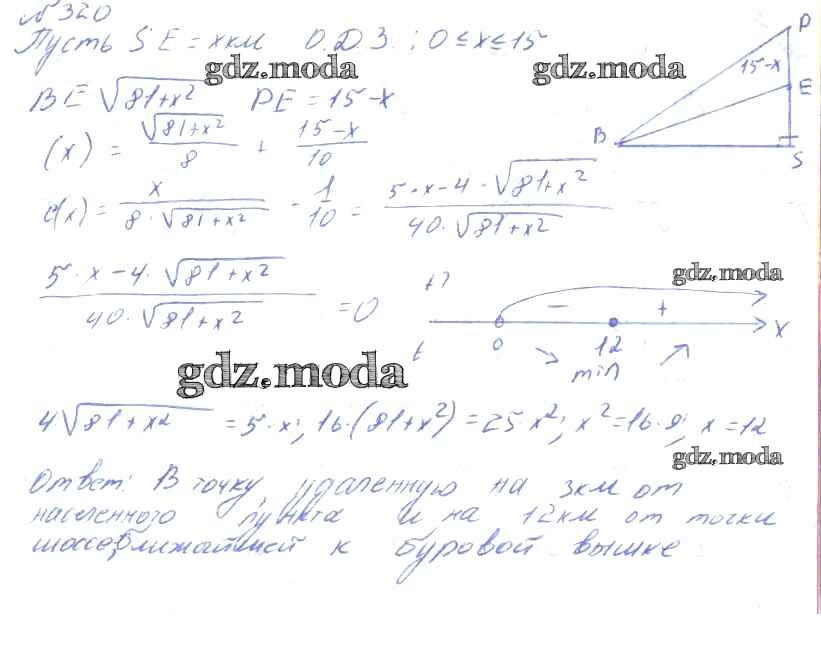 №320
Пусть SE = xкм О.Д.З.: 0 ≤ x ≤ 15
gdz.moda gdz.moda
BE √81+x² PE = 15-x
(x) = √81+x² / 8 + 15-x / 10
(x) = x / 8·√81+x² - 1/10 = 5·x-4·√81+x² / 40·√81+x²
P
15-x
E
B
S
5·x-4·√81+x² / 40·√81+x² = 0
gdz.moda
- +
0 12 x
t min
gdz.moda
4√81+x2 = 5·x; 16·(81+x²) = 25x²; x²=16·9; x=12
gdz.moda
Ответ: В точку, удаленную на 3км от
населенного пункта и на 12км от точки
шоссе, ближайшей к буровой вышке